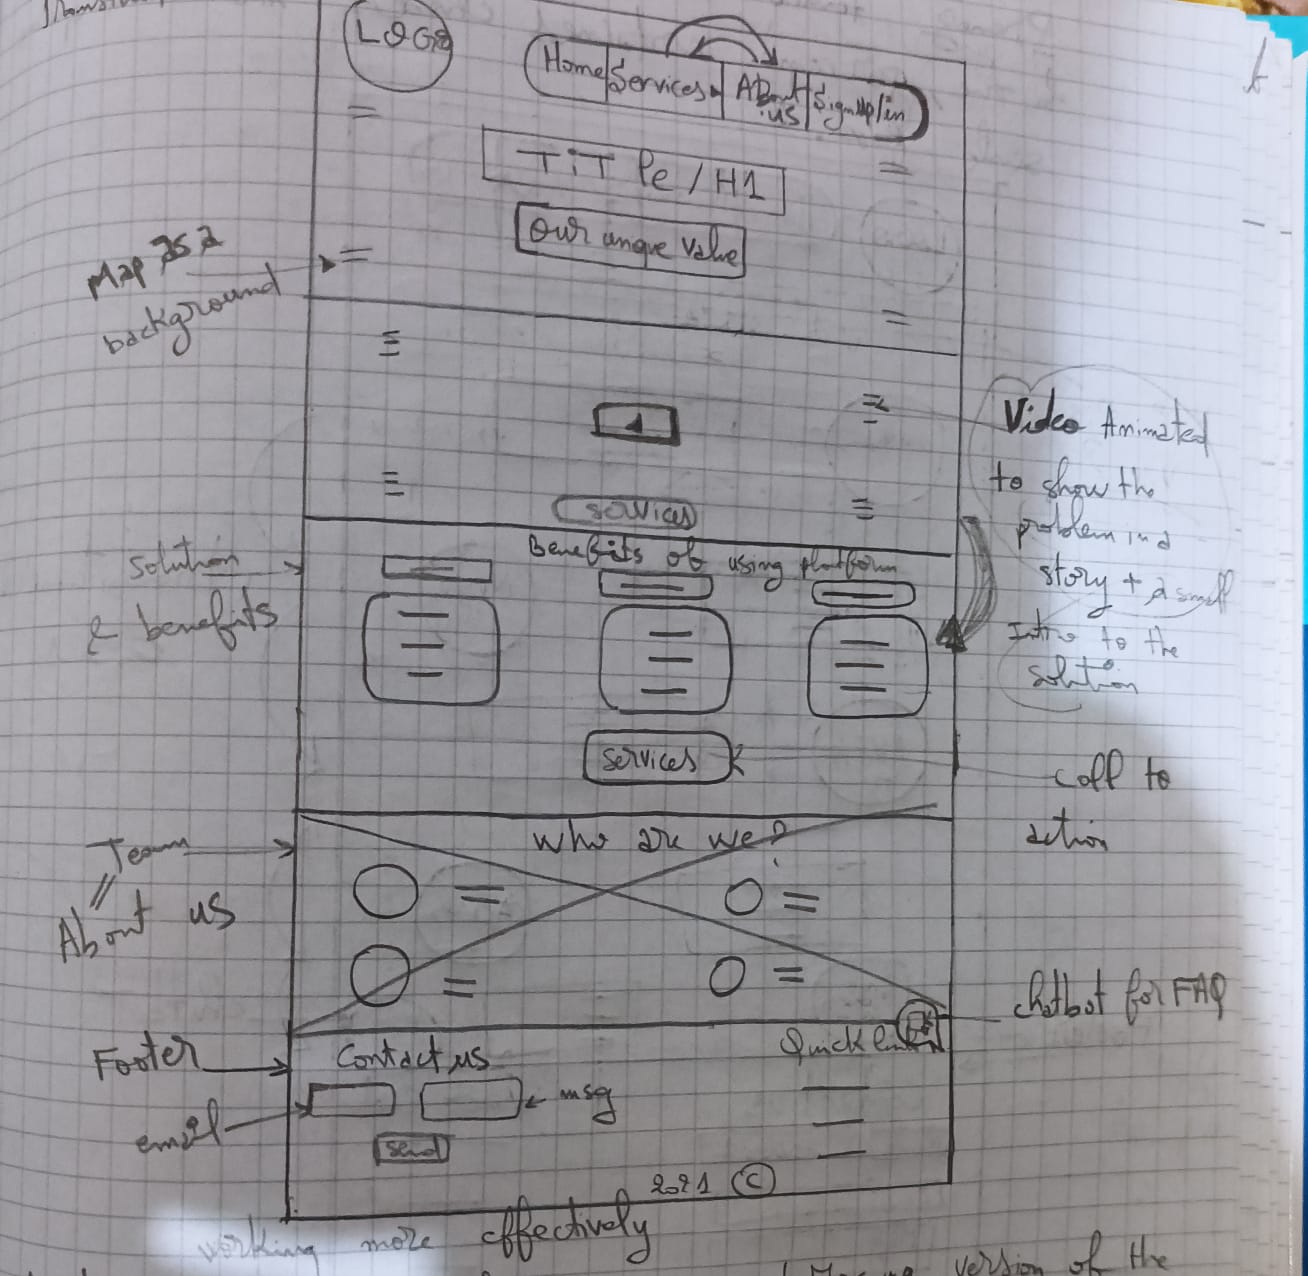 LOGO
Home Services About us SignUp/in
TiTle/H1
Our unique value
Map as a
background
1
Video Animated
to show the
problem in a
story + a small
Intro to the
solution
services
Benefits of using platform
solution
& benefits
services
call to
action
Who are we?
Team
About us
chatbot for FAQ
Footer
Contact us
Quick
email
msg
send
2021 ©
working more effectively
version of the